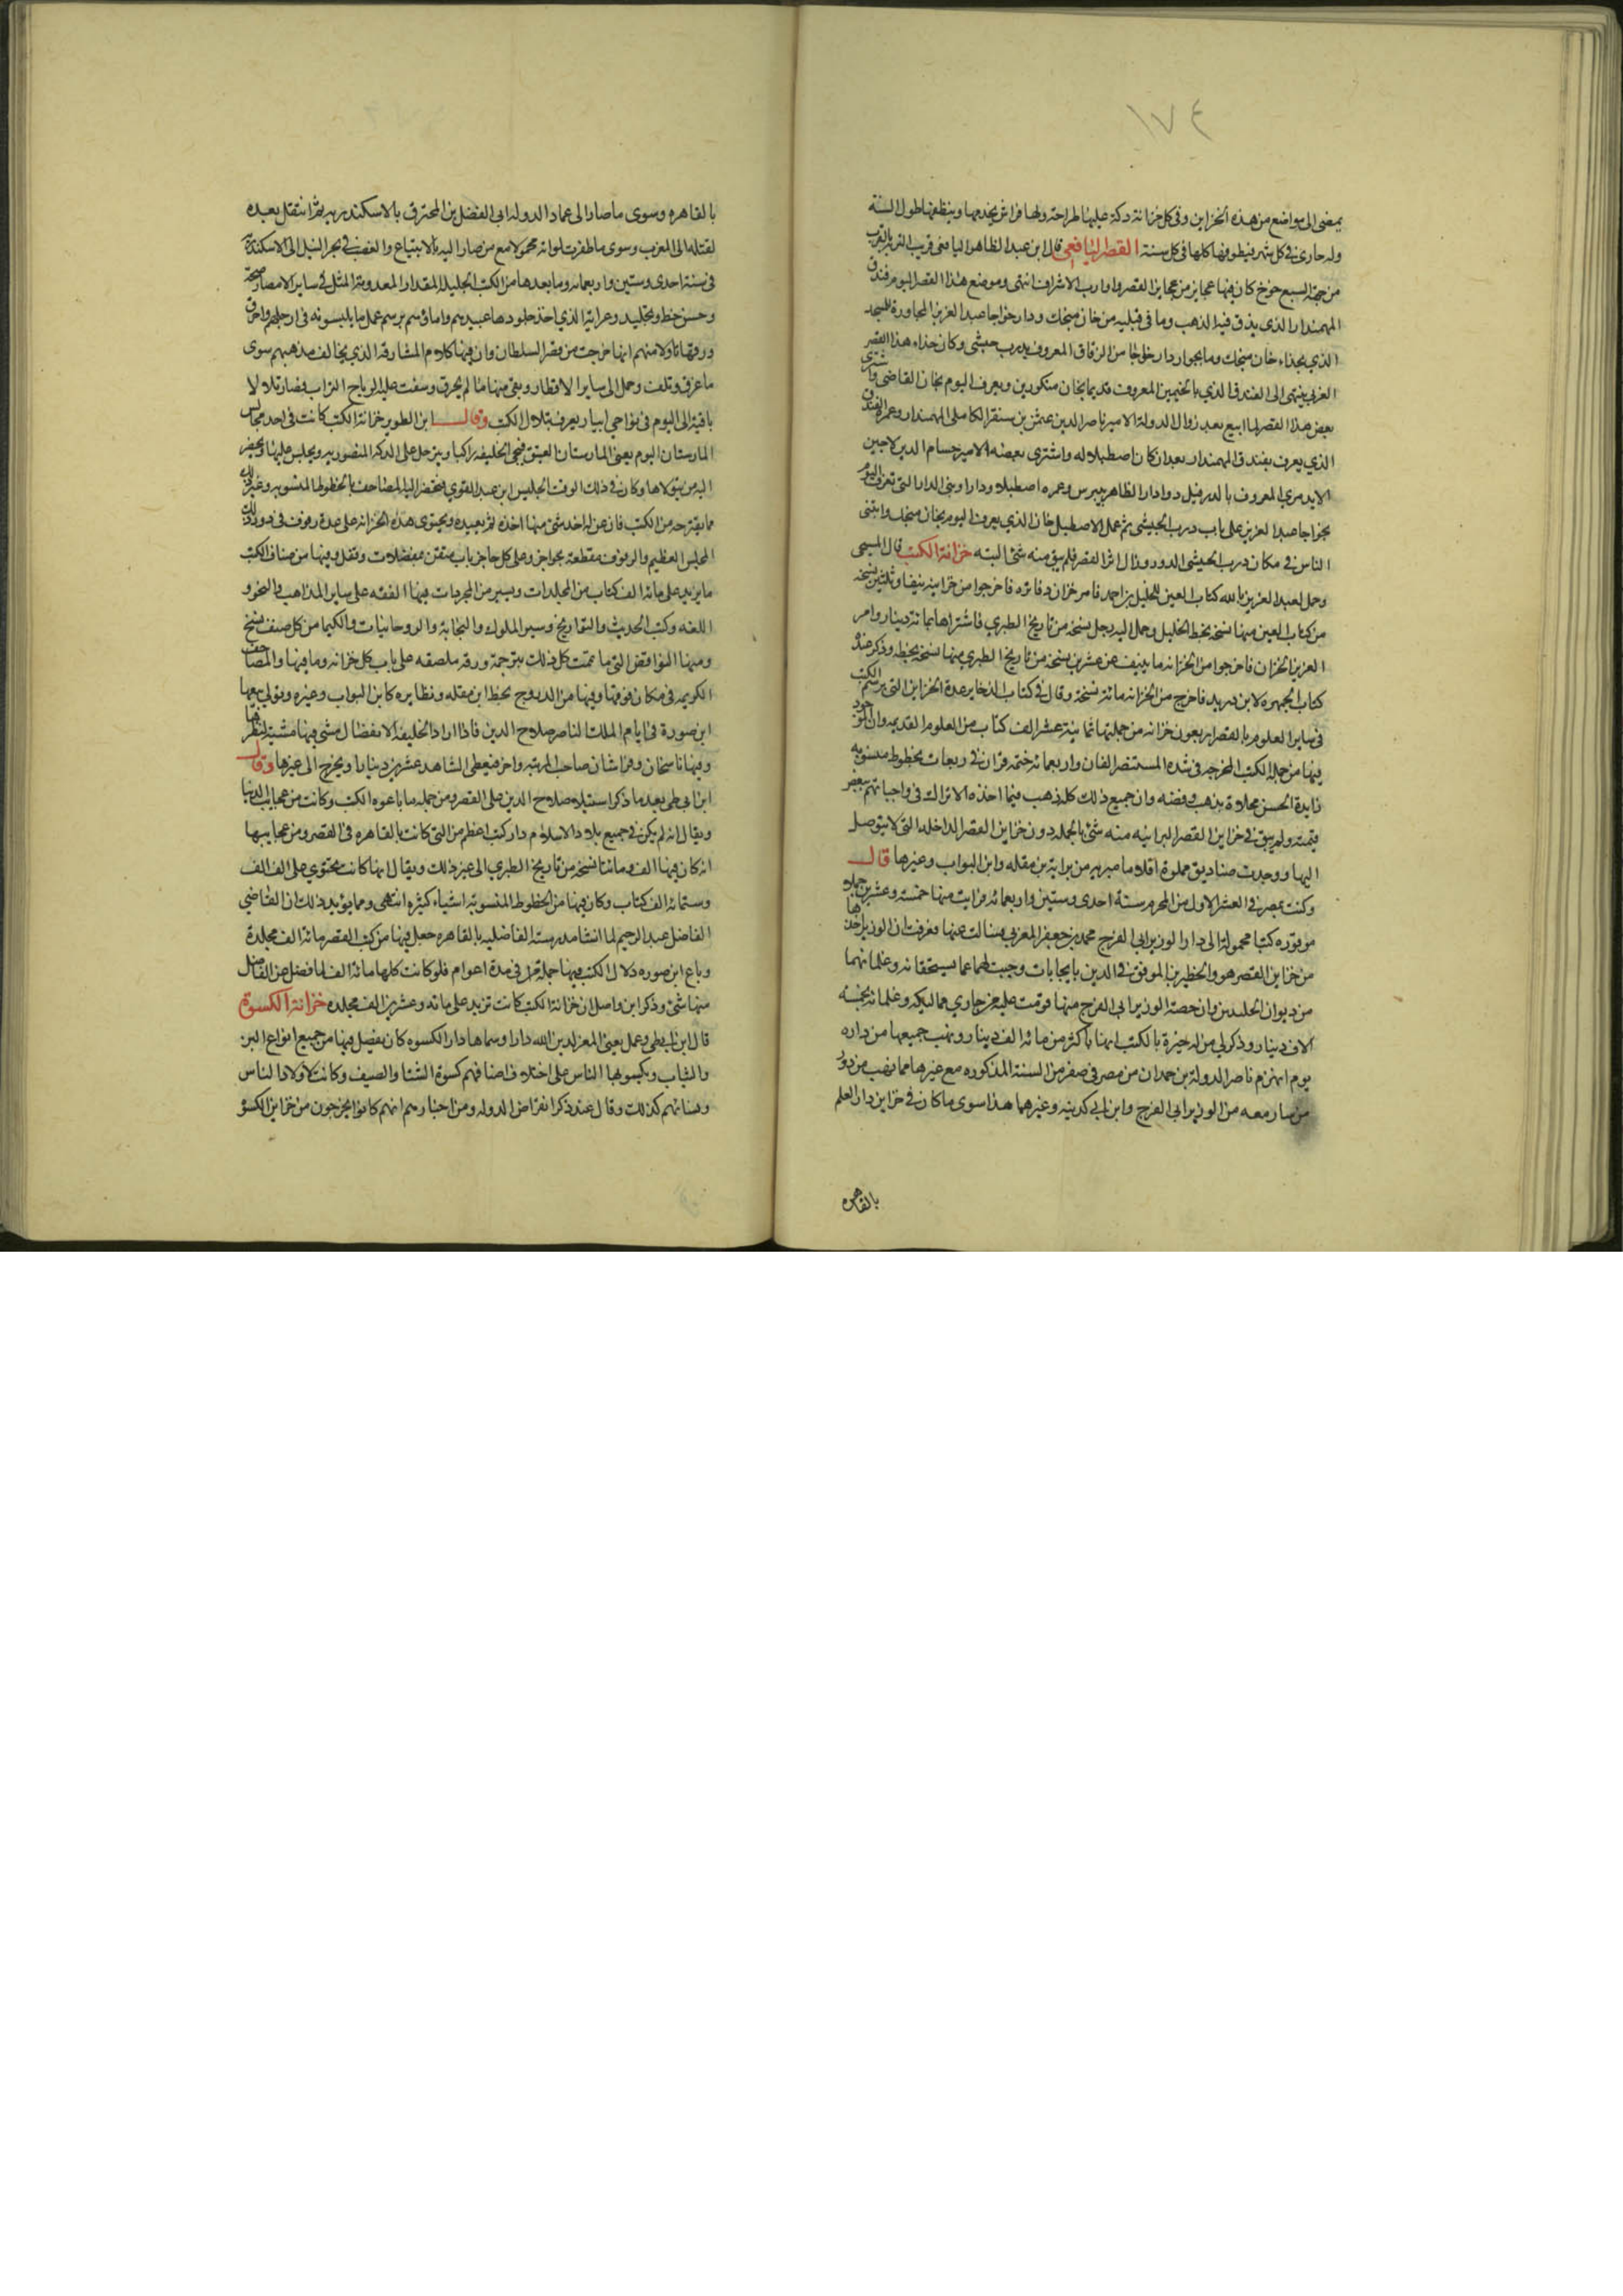 ١٧٤
يمضى الى مواضع من هذه الخزاين وفى كل خزانة دكة عليها طراحة ولها فراش يخدمها وينظفها طول السنة
وله جارى فى كل شهر فيطوفها كلها فى كل سنة القصر اليافعى قال ابن عبد الظاهر اليافعى قريب التربة بالقرب
من جهة السبع خوخ كان فيها عجايز من عجايز القصر واقارب الاشراف انتهى وموضع هذا القصر اليوم فندق
المهمندار الذى يدق فيه الذهب وما فى قبليه من خان منجك ودار خواجا عبد العزيز المجاورة للمسجد
الذى بحذاء خان منجك وما بجوار دار خواجا من الزقاق المعروف بدرب حبشى وكان حذاء هذا القصر
الغربى ينتهى الى الفندق الذي بالخيمين المعروف قديما بخان منكورس ويعرف اليوم بخان القاضى واشترى
بعض هذا القصر لما ابيع بعد زوال الدولة الامير ناصر الدين عثمن بن سنقر الكاملى المهمندار وعمره الفندق
الذي يعرف بفندق المهمندار بعد ان كان اصطبلا له واشترى بعضه الامير حسام الدين لاجين
الايدمري المعروف بالدرفيل دوادار الظاهر بيبرس وعمره اصطبلا ودارا وهى الدار التى تعرف اليوم
بخواجا عبد العزيز على باب درب الحبيشى ثم عمل الاصطبل خان الذي يعرف اليوم بخان منجك وابتنى
الناس فى مكان درب الحبيشى الدور وزال اثر القصر فلم يبق منه شئ البته خزانة الكتب قال المسبحى
وحمل لعبد العزيز بالله كتاب العين للخليل بن احمد فامر خزان دفاتره فاخرجوا من خزاينه نيفا وثلثين نسخة
من كتاب العين منها نسخة بخط الخليل وحمل اليه رجل نسخة من تاريخ الطبري فاشتراها بماتة دينار وامر
العزيز الخزان فاخرجوا من الخزانة ما ينيف عن عشرين نسخة من تاريخ الطبري منها نسخة بخطه وذكر عنده
كتاب الجمهره لابن دريد فاخرج من الخزانة مائة نسخة وقال فى كتاب الذخاير عدة الخزاين التى برسم الكتب
فى ساير العلوم بالقصر اربعون خزانه من جملتها ثمانية عشر الف كتاب من العلوم القديمه وان الموجود
فيها من جملة الكتب المخرجه فى شده المستنصر الفان واربعمائه ختمه قران فى ربعات بخطوط منسوبه
زايدة الحسن محلاة بذهب وفضه وان جميع ذلك كله ذهب فيما اخذه الاتراك فى واجباتهم ببعض
قيمته ولم يبق فى خزاين القصر البرانيه منه شئ بالجمله دون خزاين القصر الداخله التى لا يتوصل
اليها ووجدت صناديق مملوة اقلاما مبريه من براية بن مقله وابن البواب وغيرها قال
وكنت بمصر فى العشر الاول من المحرم سنة احدى وستين واربعمائه فرايت منها خمسة وعشرين جملا
موقوره كتبا محمولة الى دار الوزير ابى الفرج محمد بن جعفر المغربى فسالت عنها فعرفت ان الوزير اخذها
من خزاين القصر هو والخطير بن الموفق فى الدين بايجابات وجبت لهما عما يستحقانه وغلمانهما
من ديوان الحلبيين وان حصة الوزير ابى الفرج منها قومت عليه من جاري مماليكه وغلمانه بخمسة
الاف دينار وذكر لى من له خبرة بالكتب انها باكثر من مائة الف دينار ونهب جميعها من داره
يوم انهزم ناصر الدولة بن حمدان من مصر فى صفر من السنة المذكوره مع غيرها مما نهب من دور
من سار معه من الوزير ابى الفرج وابن ابى كدينه وغيرهما هذا سوى ما كان فى خزاين دار العلم
بالقاهره
بالقاهره وسوى ما صار الى عماد الدوله ابى الفضل بن المحترق بالاسكندريه ثم انتقل بعده
لقتله الى المغرب وسوى ما ظفرت لواته محمولا مع من صار اليه بالابتياع والغصب فى بحر النيل الى الاسكندرية
فى سنة احدى وستين واربعمائه وما بعدها من الكتب الجليلة المقدار المعدومة المثل فى ساير الامصار صحة
وحسن خط وتجليد وغرابة الذي اخذ جلودها عبيدهم واماؤهم برسم عمل ما يلبسونه فى ارجلهم واحرق
ورقها تاولا منهم انها خرجت من قصر السلطان وان فيها كلام المشارقة الذي يخالف مذهبهم سوى
ما غرق وتلف وحمل الى ساير الاقطار وبقى منها ما لم يحرق وسفت عليه الرياح التراب فصار تلالا
باقية الى اليوم فى نواحي ابيار يعرف بتلال الكتب وقال ابن الطوير خزانة الكتب كانت فى احد مجالس
المارستان اليوم يعنى المارستان العتيق فيجى الخليفه راكبا ويترجل على الدكة المنصوريه ويجلس عليها ويحضر
اليه من يتولاها وكان فى ذلك الوقت الجليس ابن عبد القوي فيحضر اليه المصاحف بالخطوط المنسوبه وغير ذلك
مما يقترحه من الكتب فان عن له اخذ شئ منها اخذه ثم يعيده ويحتوى هذه الخزانه على عدة رفوف فى دور ذلك
المجلس العظيم والرفوف مقطعة بحواجز وعلى كل حاجز باب متقن بمفصلات وقفل وفيها من اصناف الكتب
ما يزيد على مائة الف كتاب من المجلدات ويسير من المجردات فيها الفقه على ساير المذاهب والنحو و
اللغه وكتب الحديث والتواريخ وسير الملوك والنجابة والروحانيات والكيميا من كل صنف نسخ
ومنها النواقص التى ما تممت كل ذلك بترجمة ورقه ملصقه على باب كل خزانه وما فيها والمصاحف
الكريمه فى مكان فوقها وفيها من الدروج بخط ابن مقله ونظايره كابن البواب وغيره وتولى بيعها
ابن صورة فى ايام الملك الناصر صلاح الدين فاذا اراد الخليفه الانفصال مشى فيها مشية لنظرها
وفيها ناسخان وفراشان صاحب المرتبه واخر فيعطى الشاهد عشرين دينارا ويخرج الى غيرها وقال
ابن ابى طى بعد ما ذكر استيلاء صلاح الدين على القصر ومن جمله ما باعوه الكتب وكانت من عجايب الدنيا
ويقال انه لم يكن فى جميع بلاد الاسلام دار كتب اعظم من التى كانت بالقاهره فى القصر ومن عجايبها
انه كان فيها الف ومائتا نسخة من تاريخ الطبري الى غير ذلك ويقال انها كانت تحتوي على الف الف
وستمائه الف كتاب وكان فيها من الخطوط المنسوبة اشياء كثيره انتهى ومما يؤيد ذلك ان القاضي
الفاضل عبد الرحيم لما انشا مدرسته الفاضليه بالقاهره جعل فيها من كتب القصر مائة الف مجلدة
وباع ابن صوره دلال الكتب فيها جملة فى مدة اعوام فلو كانت كلها مائة الف لما فضل عن الفاضل
منها شئ وذكر ابن واصل ان خزانة الكتب كانت تزيد على مائه وعشرين الف مجلده خزانة الكسوة
قال ابن ابى طى وعمل يعنى المعز لدين الله دارا وسماها دار الكسوه كان يفصل فيها من جميع انواع البز
والثياب ويكسوها الناس على اختلاف اصنافهم كسوة الشتا والصيف وكانت لاولاد الناس
ونسائهم كذلك وقال عند ذكر انقراض الدوله ومن اخبارهم انهم كانوا يخرجون من خزاين الكسو